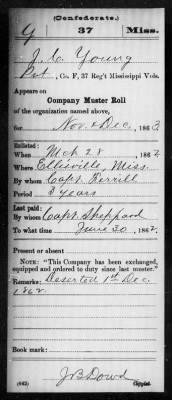 (Confederate.)
Y 37 Miss.
J. C. Young
Pvt, Co. F, 37 Reg't Mississippi Vols.
Appears on
Company Muster Roll
of the organization named above,
for Nov. & Dec, 1863
Enlisted:
When Mch 28, 1862
Where Ellisville, Miss.
By whom Capt. Terrill
Period 3 years
Last paid:
By whom Capt. Sheppard
To what time June 30, 1862.
Present or absent
NOTE: "This Company has been exchanged, equipped and ordered to duty since last muster."
Remarks: Deserted 1st Dec.
1862.
Book mark:
(642) J B Dowd
Copyist.